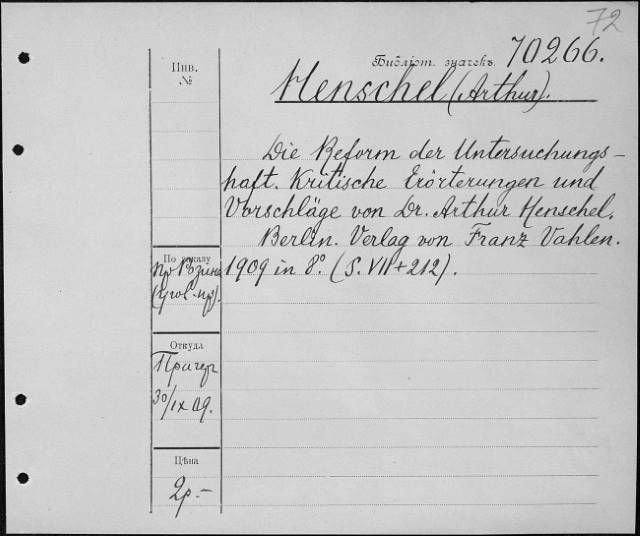 72
Библіот. значекъ 70266.
Инв.
№
Henschel (Arthur).
Die Reform der Untersuchungs-
haft. Kritische Erörterungen und
Vorschläge von Dr. Arthur Henschel.
Berlin. Verlag von Franz Vahlen.
1909 in 8°. (S. VII + 212).
По заказу
пр
(угол. пр.).
Откуда
30/IX 09.
Цѣна
2р.–